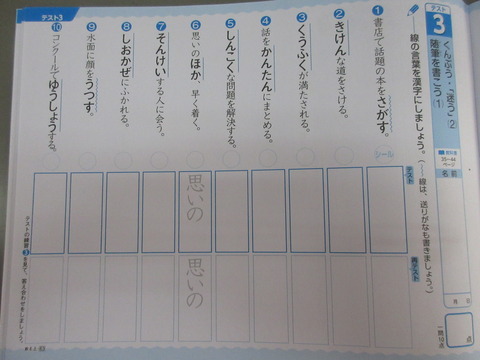 テスト
3
くんぷう・「迷う」(2)
随筆を書こう(1)
教科書
25〜44
ページ
名前
月 日
一問10点
点
線の言葉を漢字にしましょう。(〰線は、送りがなも書きましょう。)
シール
テスト
再テスト
❶書店で話題の本をさがす。
❷きけんな道をさける。
❸くうふくが満たされる。
❹話をかんたんにまとめる。
❺しんこくな問題を解決する。
❻思いのほか、早く着く。
思いの
思いの
❼そんけいする人に会う。
❽しおかぜにふかれる。
❾水面に顔をうつす。
❿コンクールでゆうしょうする。
テスト3
テストの練習3を見て、答え合わせをしましょう。